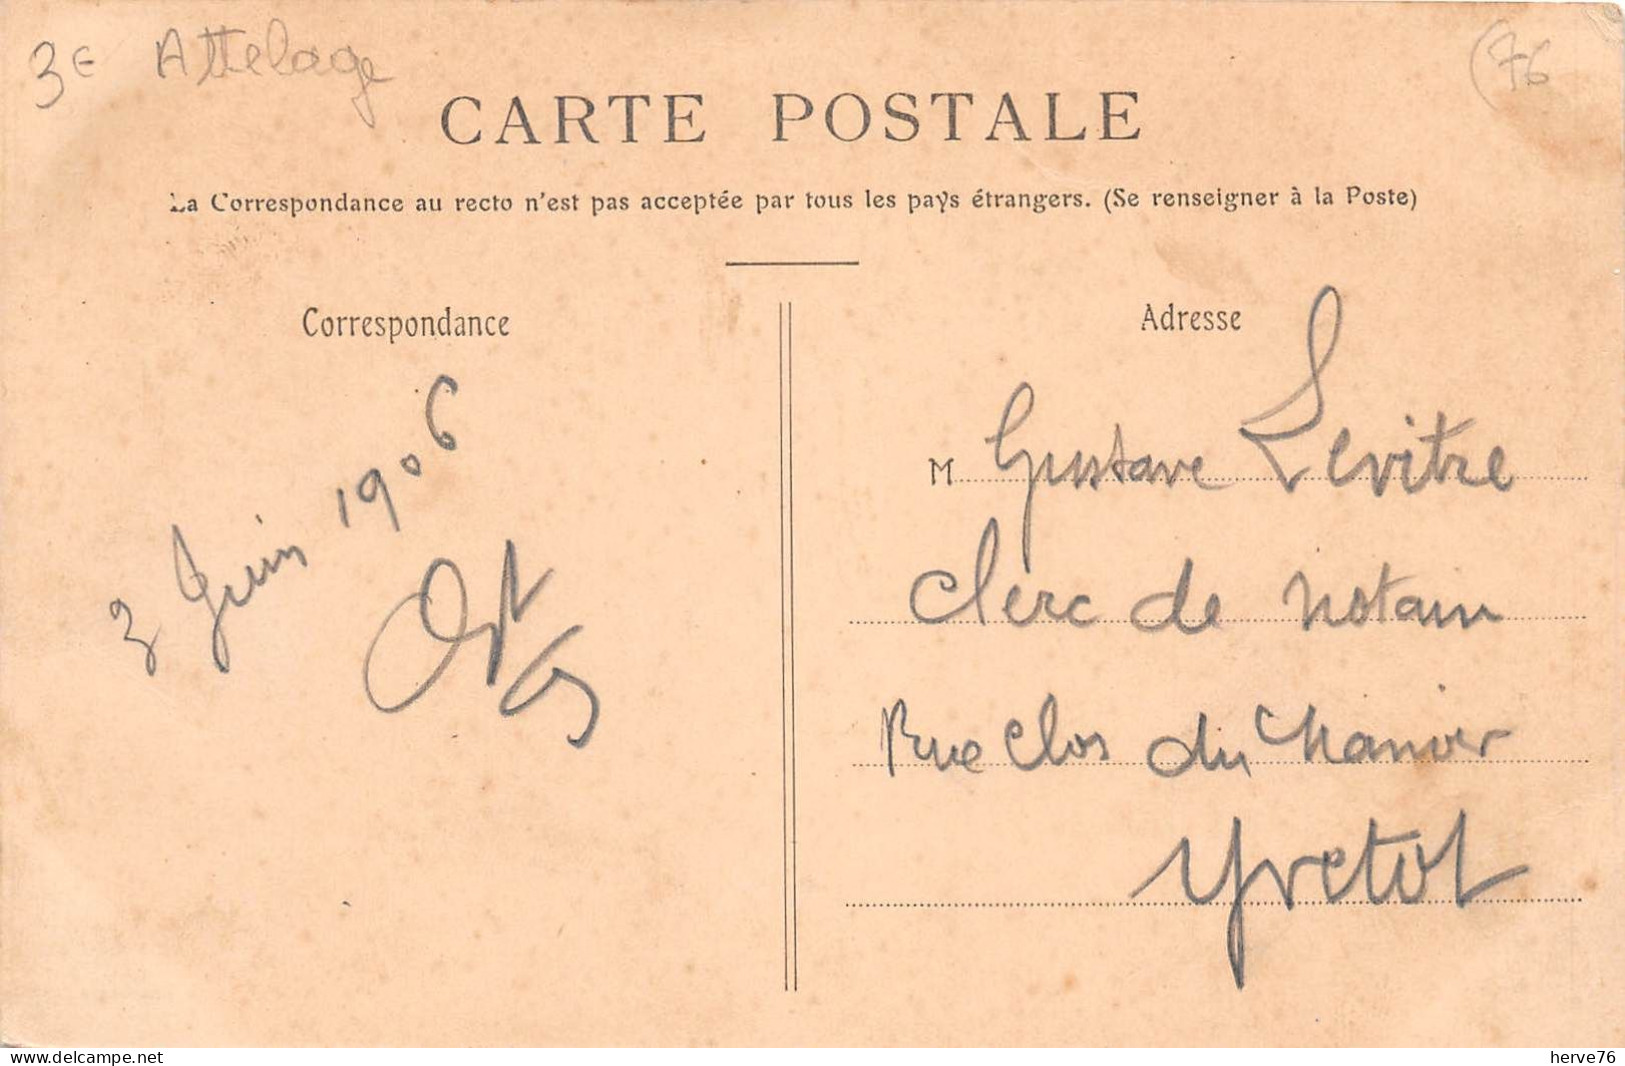 3€ Attelage
(76
CARTE POSTALE
La Correspondance au recto n'est pas acceptée par tous les pays étrangers. (Se renseigner à la Poste)
Correspondance
3 Juin 1906
Adresse
M Gustave Levitre
Clerc de notaire
Rue Clos du Manoir
Yvetot
www.delcampe.net
herve76